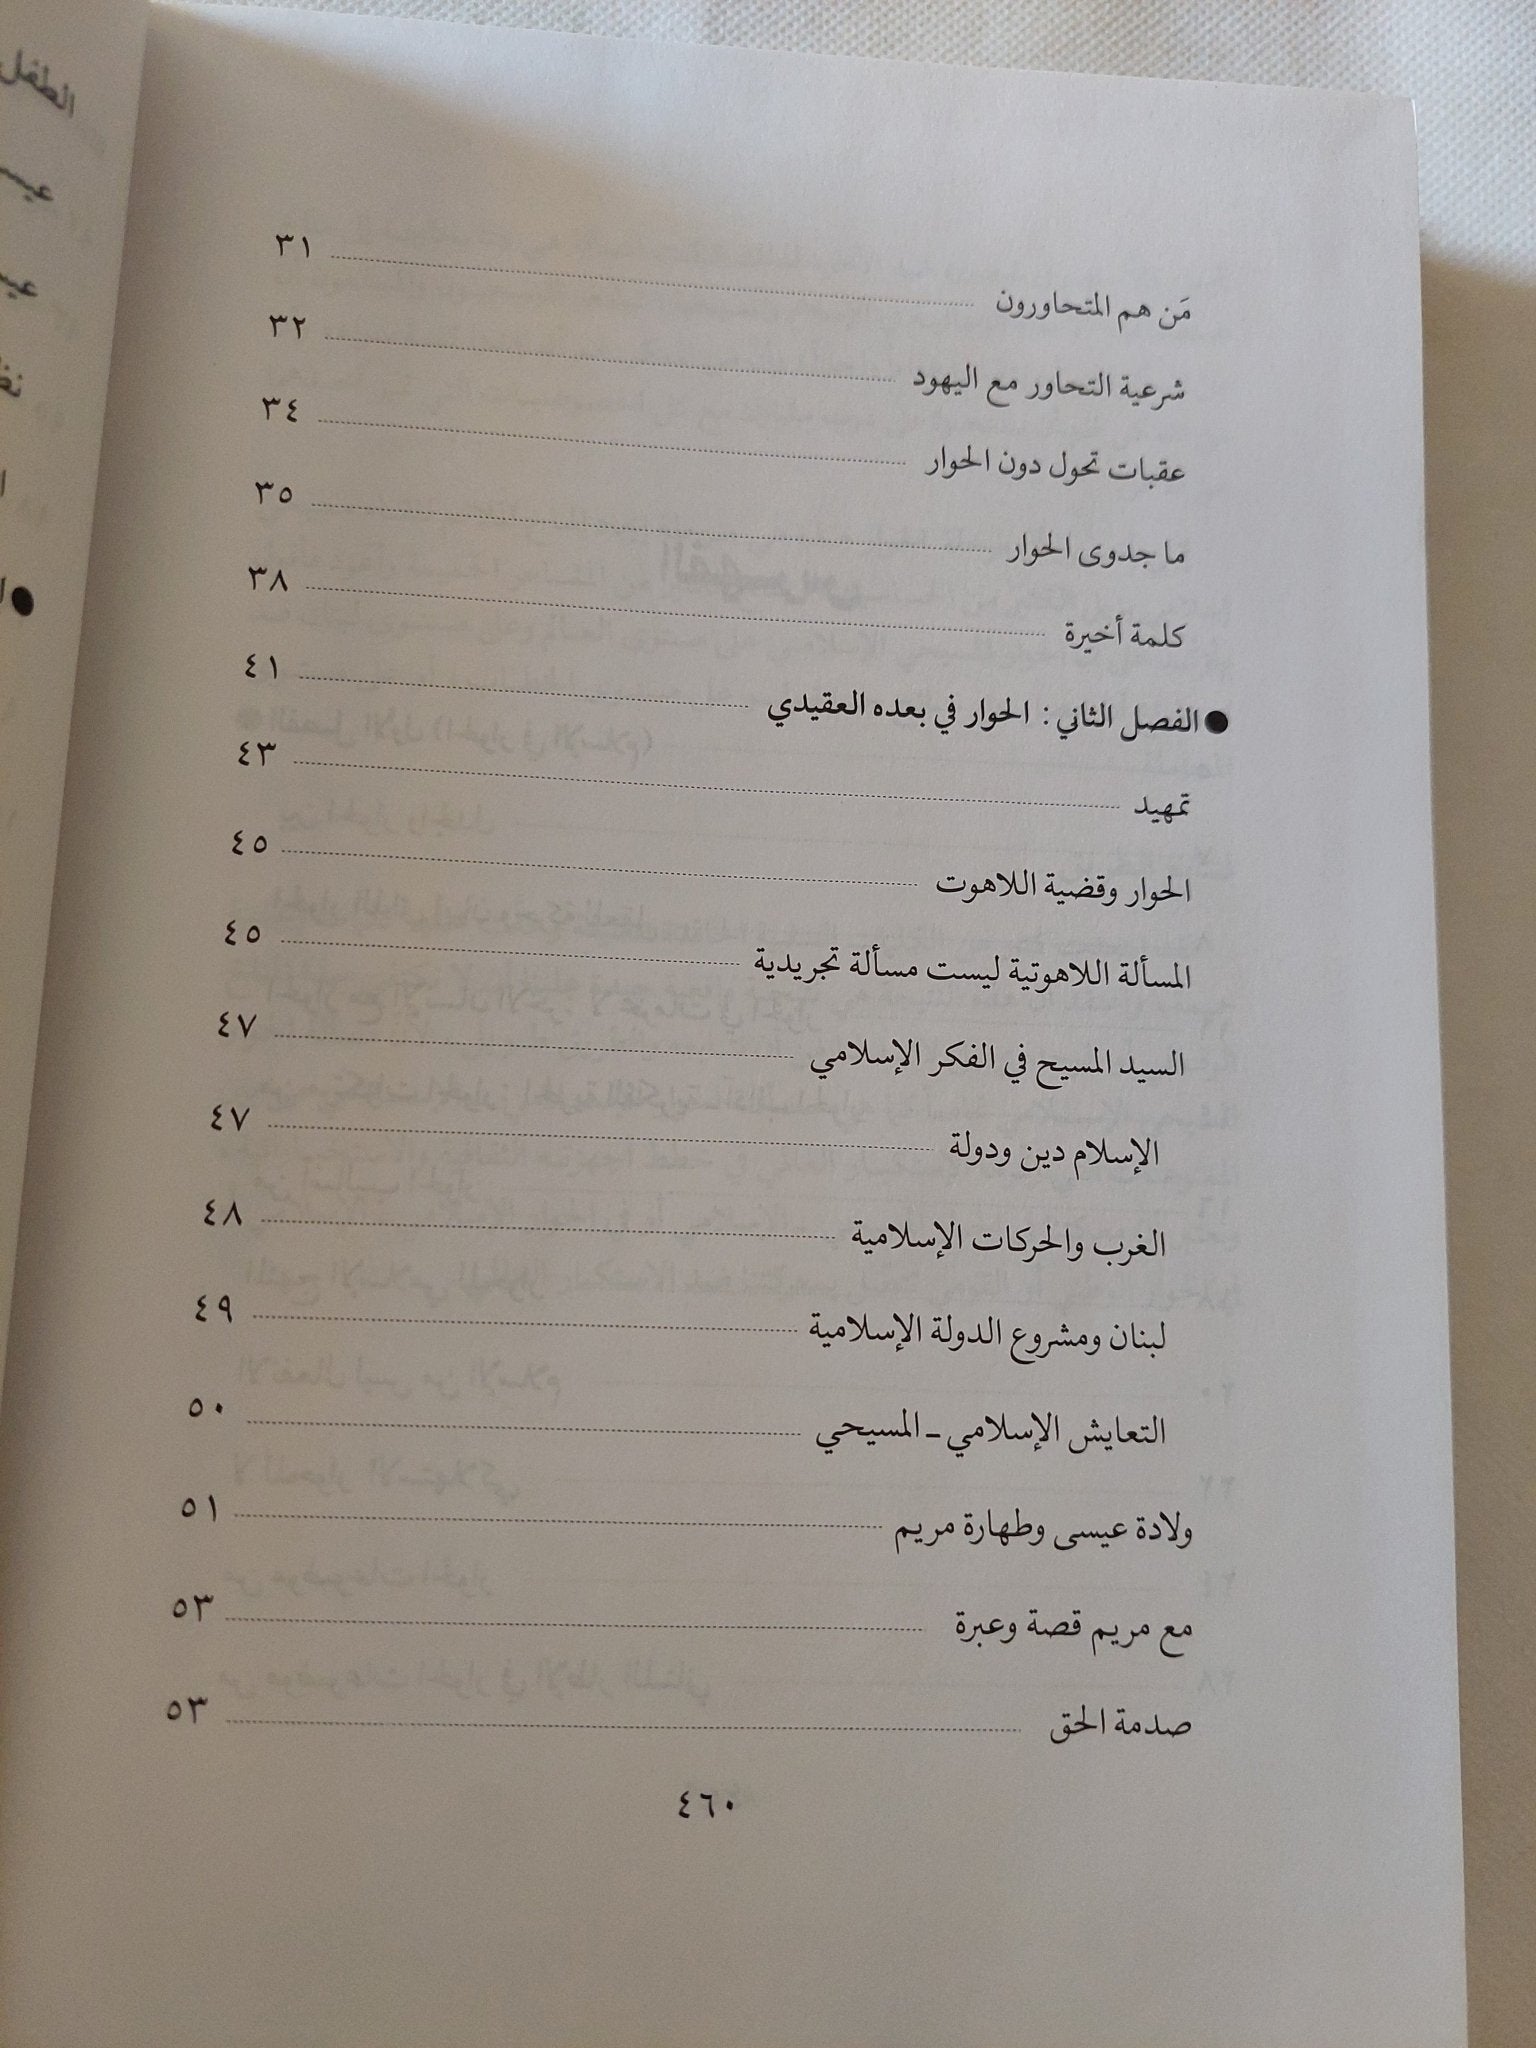 مَن هم المتحاورون ................ ٣١
شرعية التحاور مع اليهود ................ ٣٢
عقبات تحول دون الحوار ................ ٣٤
ما جدوى الحوار ................ ٣٥
كلمة أخيرة ................ ٣٨
● الفصل الثاني : الحوار في بعده العقيدي ................ ٤١
تمهيد ................ ٤٣
الحوار وقضية اللاهوت ................ ٤٥
المسألة اللاهوتية ليست مسألة تجريدية ................ ٤٥
السيد المسيح في الفكر الإسلامي ................ ٤٧
الإسلام دين ودولة ................ ٤٧
الغرب والحركات الإسلامية ................ ٤٨
لبنان ومشروع الدولة الإسلامية ................ ٤٩
التعايش الإسلامي ـ المسيحي ................ ٥٠
ولادة عيسى وطهارة مريم ................ ٥١
مع مريم قصة وعبرة ................ ٥٣
صدمة الحق ................ ٥٣
٤٦٠